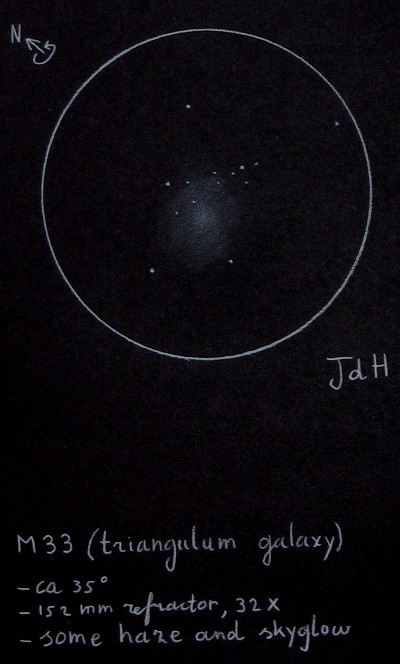 N
JdH
M33 (triangulum galaxy)
- ca 35°
- 152 mm refractor, 32x
- some haze and skyglow